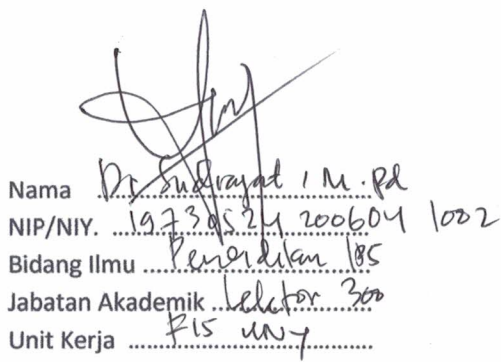 Nama Dr. Sudrajat, M.Pd
NIP/NIY. 19730524 200604 1002
Bidang Ilmu Pendidikan IPS
Jabatan Akademik Lektor 300
Unit Kerja FIS UNY